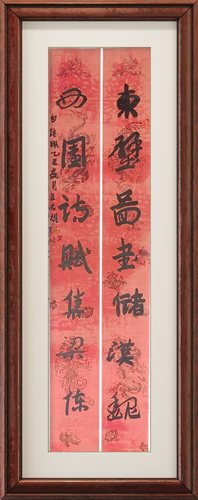 東壁圖書儲漢魏
西園詩賦集梁陳